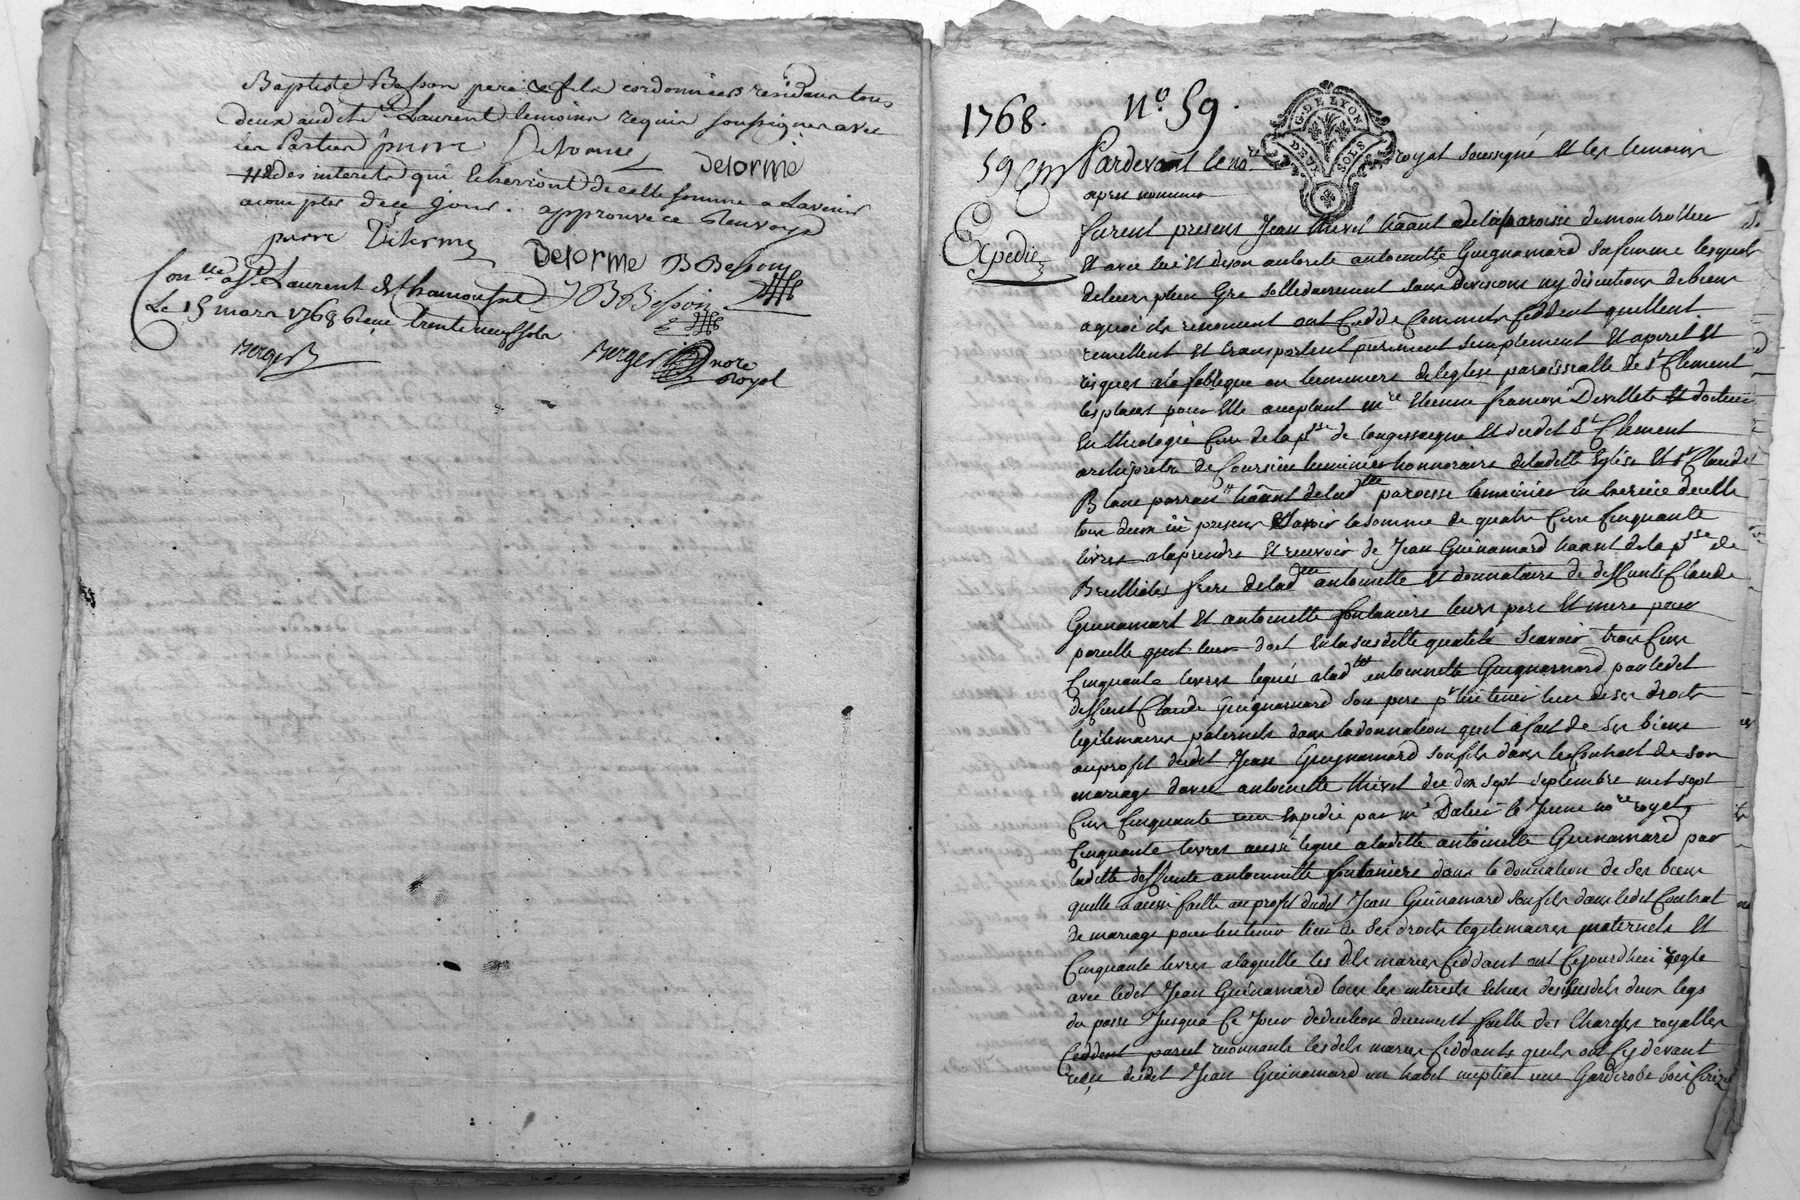 Baptiste Besson pere & fils cordonniers residents tous
deux audit St Laurent temoins requis soussignes avec
les Parties pierre Delorme Delorme
## des interets qui echerront de cette somme a lavenir
a compter de ce jour. approuvé ce renvoy
pierre Delorme Delorme B Besson
Con.lle a St Laurent de Chamousset J B Besson
Le 15 mars 1768 Reçu trente neuf sols
Berger Berger nore
Royal
1768. N.o 59.
G. DE LYON
DEUX SOLS
59 Pardevant le no.re royal soussigné Et les temoins
apres nommes
Expedié
furent presens Jean thivel hãant de la paroisse de montrottier
Et avec lui Et de son autorité antoinette Guignamard sa femme lesquels
de leur plein Gré sollidairement sans divisions ny discutions de biens
a quoi ils renoncent ont Ceddé Comme ils Ceddent quittent
remettent Et transportent purement simplement Et a peril Et
risques a la fabrique ou luminiers de leglise paroissialle de St Clement
les places pour Elle acceptant m.re Etienne francois Devillets Et docteur
En theologie Curé de la p.sse de longessaigne Et dudit St Clement
archipretre de Coursieu luminier honnoraire de ladite Eglise Et Sr Claude
Blanc hãant de lad.tte paroisse luminier en Exercice de celle
tous deux ici presens Sçavoir la somme de quatre Cens Cinquante
livres a la prendre Et recevoir de Jean Guinamard hãant de la p.sse de
Brullioles frere de lad.tte antoinette Et donnataire de deffunts Claude
Guinamart Et antoinette fontaniere leurs pere Et mere pour
pareille quil leur doit En la susditte quotité Scavoir trois Cens
Cinquante livres legués a lad.tte antoinette Guignamard par ledit
deffunt Claude Guignamard son pere p.r lui tenir lieu de ses droits
legitimaires paternels dans la donnation quil a fait de ses biens
au profit dudit Jean Guignamard son fils dans le Contract de son
mariage davec antoinette thivel du dix sept septembre mil sept
Cens Cinquante Expedié par m.e Dalin le Jeune no.re royal
Cinquante livres aussi legué a laditte antoinette Guinamard par
laditte deffunte antoinette fontaniere dans la donnation de ses biens
quelle a aussi faitte au profit dudit Jean Guinamard son fils dans ledit Contrat
de mariage pour lui tenir lieu de ses droits legitimaires maternels Et
Cinquante livres a laquelle les dits maries Ceddant ont Cejourdhui reglé
avec ledit Jean Guinamard tous les interets Echus des susdits deux legs
du passé Jusqua Ce Jour deduction duement faitte des Charges royalles
Ceddent pareil reconnants lesdits maries Ceddants quils ont Cy devant
reçu dudit Jean Guinamard un habit nuptial une Garderobe bois Cerizier